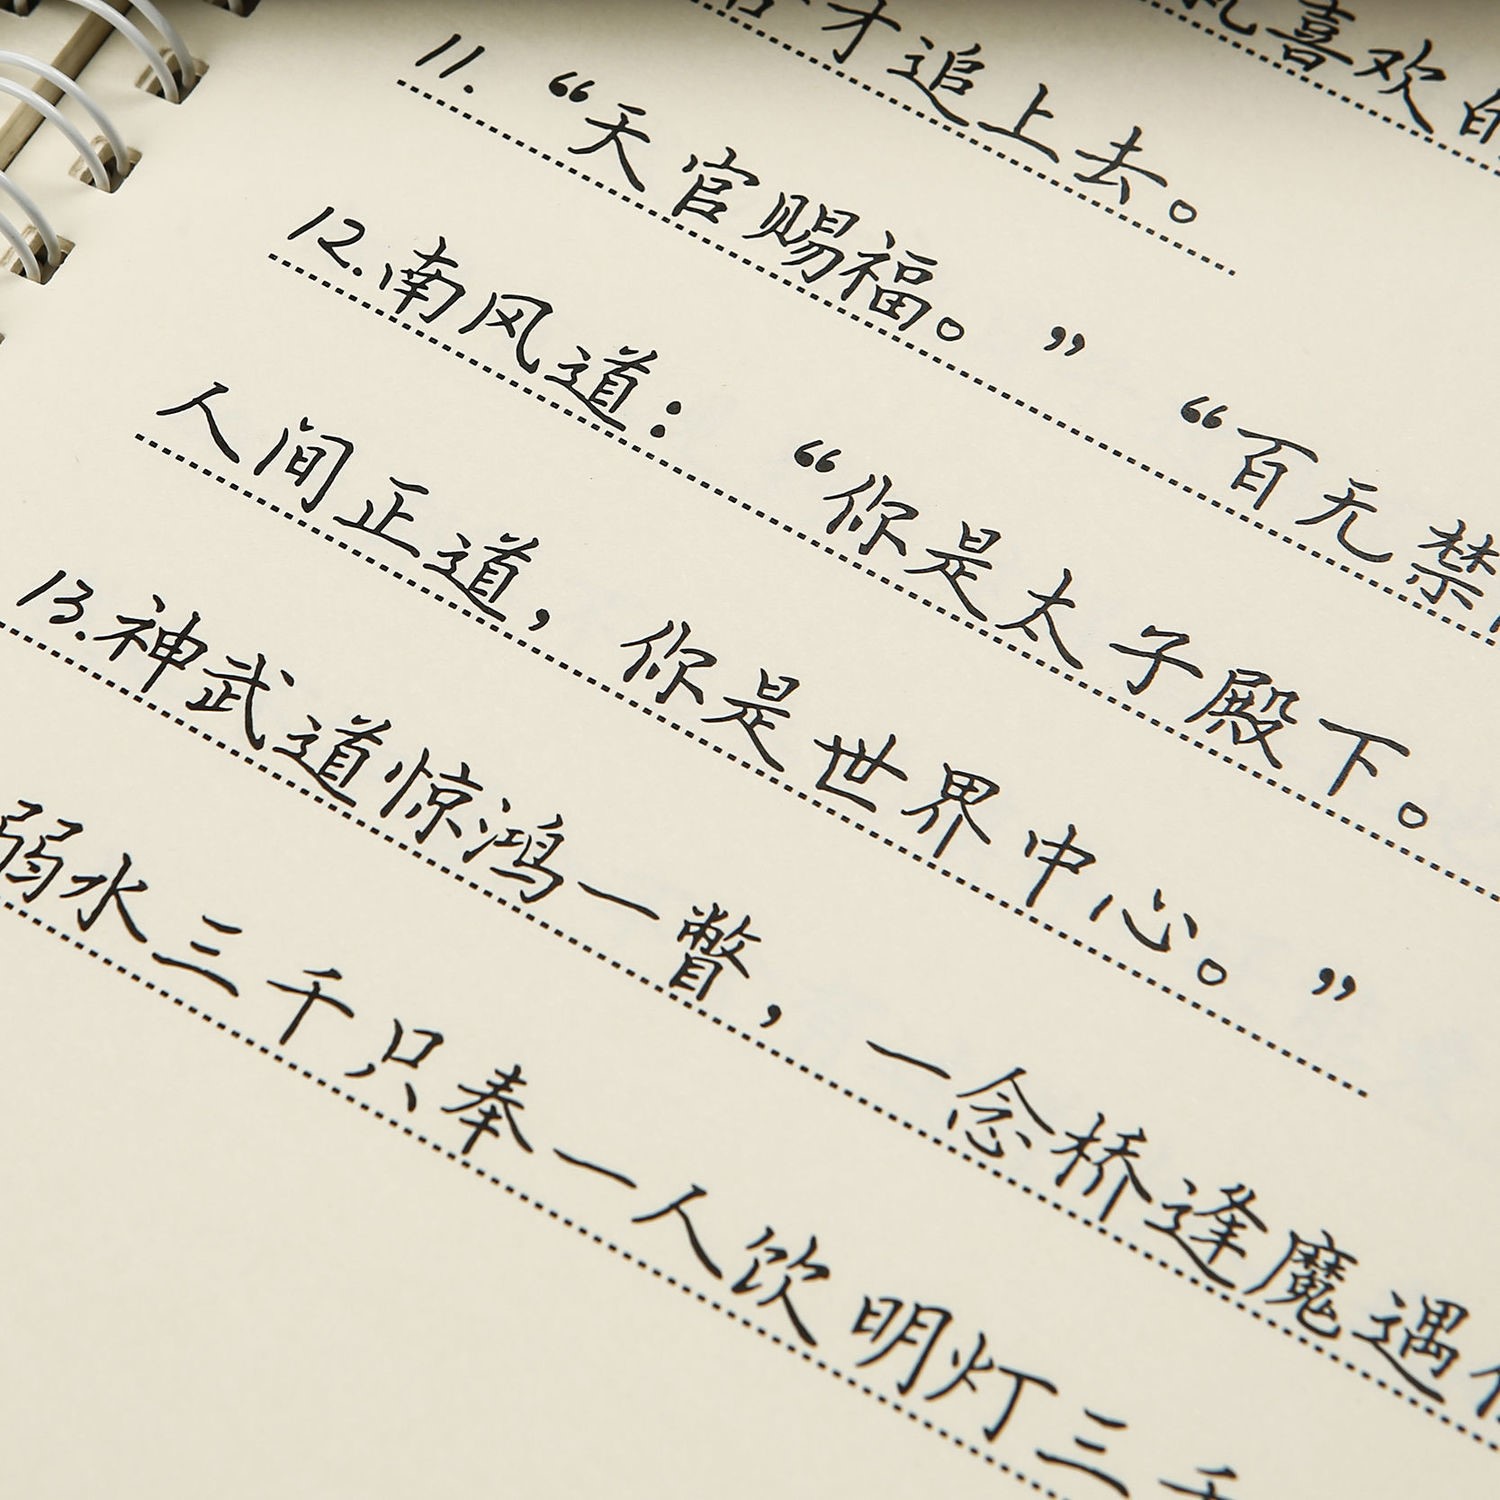 喜欢
才追上去。
11. “天官赐福。” “百无禁
12. 南风道：“你是太子殿下。
人间正道，你是世界中心。”
13. 神武道惊鸿一瞥，一念桥逢魔遇
弱水三千只奉一人饮明灯三千